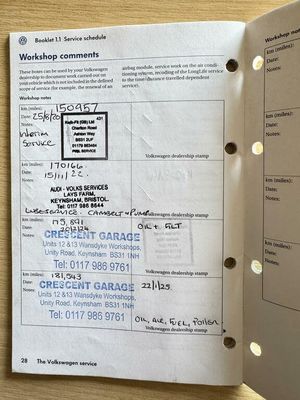 Booklet 1.1 Service schedule
Workshop comments
These boxes can be used by your Volkswagen
dealership to document work carried out on
your vehicle which is not within the defined
scope of service (for example, the renewal of an
airbag module, service work on the air condi-
tioning system, recoding of the LongLife service
to the time/distance-travelled dependent
service).
Workshop notes
km (miles): 150957
Date: 25/8/20
Notes: Interim
Service
Kwik-Fit (GB) Ltd 431
Charlton Road
Ashton Way
BS31 2UF
01179 863464
PREL SERVICE
Volkswagen dealership stamp
km (miles): 170166
Date: 15/11/22.
Notes:
AUDI - VOLKS SERVICES
LAYS FARM,
KEYNSHAM, BRISTOL.
Tel: 0117 986 8644
Volkswagen dealership stamp
LUBESERVICE. CAMBELT + PUMP
km (miles): 175,891
Date: 20/2/24
Notes:
OIL + FILT
CRESCENT GARAGE
Units 12 &13 Wansdyke Workshops,
Unity Road, Keynsham BS31 1NH
Tel: 0117 986 9761
Volkswagen dealership stamp
km (miles): 181,543
Date: 22/1/25.
Notes:
CRESCENT GARAGE
Units 12 &13 Wansdyke Workshops,
Unity Road, Keynsham, BS31 1NH
Tel: 0117 986 9761
OIL, AIR, FUEL, POLLEN
Volkswagen dealership stamp
28 The Volkswagen service
km (miles):
Date:
Notes:
km (miles)
Date:
Notes: